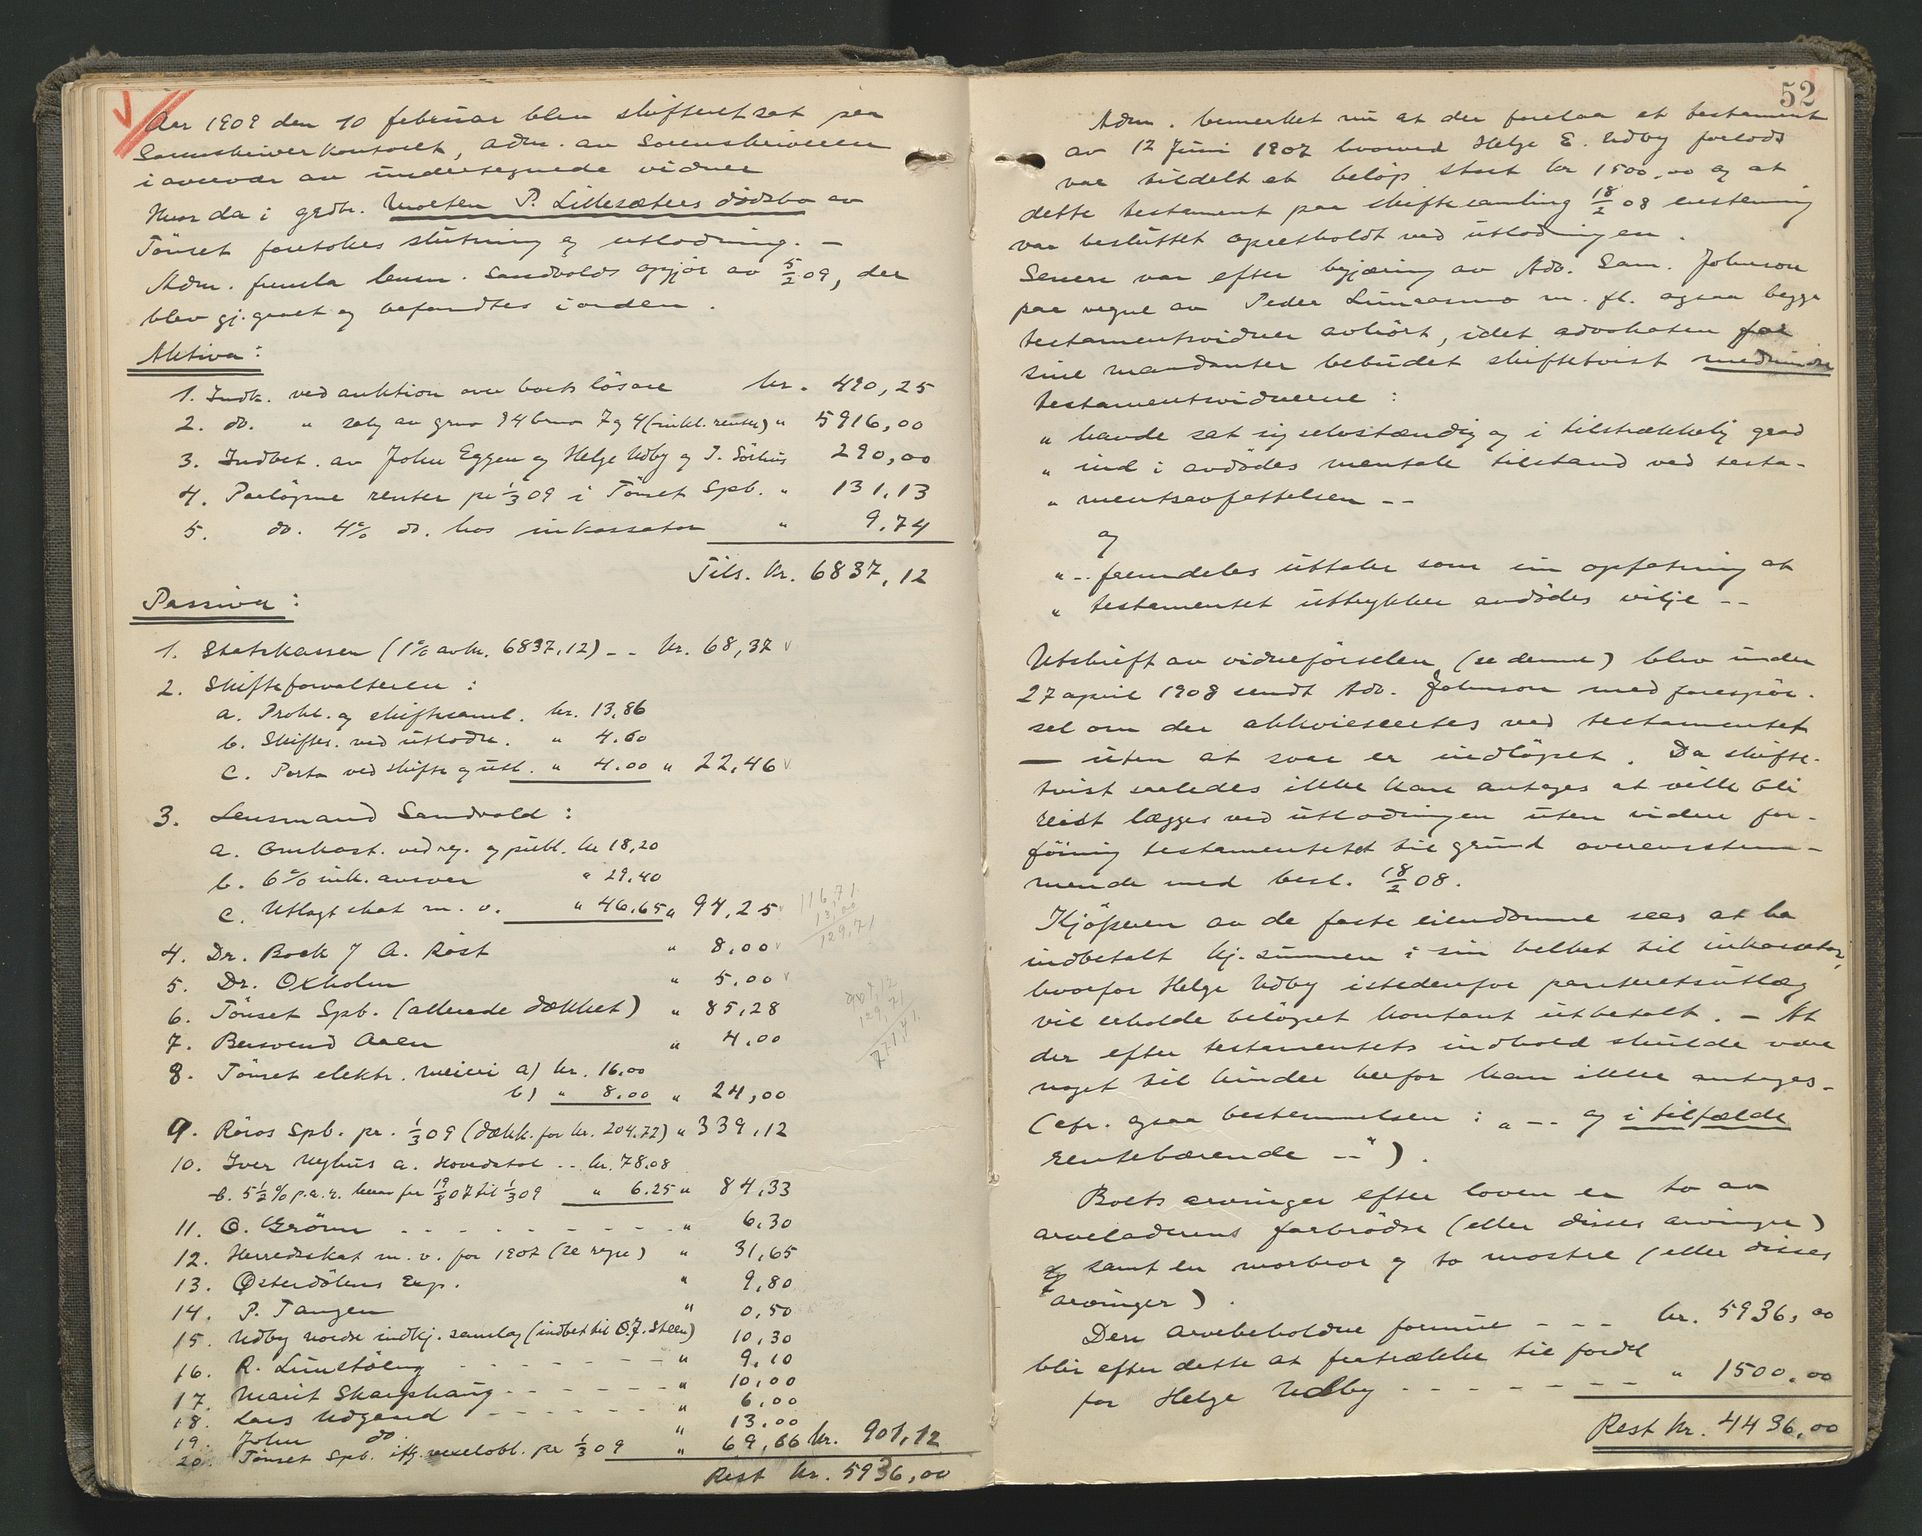 Aar 1909 den 10 februar blev skifteret sat paa
Sorenskriverkontoret, adm. av Sorenskriveren
i overvær av undertegnede vidner
Hvor da i grdbr. Morten P. Lillesæters dödsbo av
Tönset foretokes slutning og utlodning. –
Adm. fremla lensm. Sandvolds opgjör av 5/2 09, der
blev gj.gaaet og befandtes i orden.
Aktiva:
1. Indk. ved auktion over boets lösöre kr. 490,25
2. do. " salg av gno 94 bno 7 og 4 (inkl. renter) " 5916,00
3. Indbet. av John Eggen og Helge Udby og J. " 290,00
4. Paalöpne renter pr 1/3 09 i Tönset Spb. " 131,13
5. do. 4% do. hos inkassator " 9,74
Tils. kr. 6837,12
Passiva:
1. Statskassen (1% av kr. 6837,12) -- kr. 68,37
2. Skifteforvalteren:
a. Prokl. og skiftesaml. kr. 13,86
b. Skifter. ved utlodn. " 4.60
c. Porto ved skifte og utl. " 4.00 " 22,46
3. Lensmand Sandvold:
a. Omkost. ved reg. og publ. kr 18,20
b. 6% ink. ansvar " 29,40
c. Utlagt skat m. v. " 46,65 " 94,25
116,71
13,00
129,71
4. Dr. Bock / A. Röst " 8,00
5. Dr. Oxholm " 5,00
6. Tönset Spb. (allerede dækket) " 85,28
7. Bersvend Aaen " 4,00
8. Tönset elektr. meieri a) kr. 16,00
b) " 8,00 " 24,00
9. Röros Spb. pr. 1/3 09 (dækk. for kr. 204.72) " 339,12
10. Iver Nyhus a. Hovedstol -- kr. 78,08
b. 5 1/2 % p.a.r. herav fra 19/8 07 til 1/3 09 " 6.25 " 84,33
11. O. Grönn - - - - - " 6,30
12. Herredsskat m. v. for 1907 (2e regn) " 31,65
13. Østerdölens Exp. " 9,80
14. P. Tangen " 0,50
15. Udby nordre indkj. samlag (indbet til O.J. Steen) 10,30
16. R. - - - - - " 9,10
17. Marit Skarphaug - - - - - " 10,00
18. Lars Udgaard - - - - - " 6,00
19. John do " 13,00
20. Tönset Spb. iflg. vexelobl. pr 1/3 09 " 69,66 kr. 901,12
Rest kr. 5936,00
52
Adm. bemerket nu at der forelaa et testament
av 12 Juni 1907 hvorved Helge E. Udby forlods
var tildelt et belöp stort kr 1500,00 og at
dette testament paa skiftesamling 18/2 08 enstemmig
var besluttet opretholdt ved utlodningen.
Senere var efter begjæring av Adv. Sam. Johnson
paa vegne av Peder m. fl. ogsaa begge
testamentsvidner avhört, idet advokaten for
sine mandanter bebudet skiftetvist medmindre
testamentsvidnerne:
" havde sat sig selvstændig og i tilstrækkelig grad
" ind i avdödes mentale tilstand ved testa-
" mentsavfattelsen --
og
" -- fremdeles uttaler som sin opfatning at
" testamentet uttrykker avdödes vilje --
Utskrift av vidneförselen (se denne) blev under
27 april 1908 sendt Adv. Johnson med forespör-
sel om der akkviesceertes ved testamentet
— uten at svar er indlöpet. Da skifte-
tvist saaledes ikke kan antages at ville bli
reist lægges ved utlodningen uten videre for-
föining testamentet til grund overensstem-
mende med besl. 18/2 08.
Kjöperen av de faste eiendomme sees at ha
indbetalt kj.summen i sin helhet til inkassator,
hvorfor Helge Udby istedenfor panteretsutlæg
vil erholde belöpet kontant utbetalt. – At
der efter testamentets indhold skulde være
noget til hinder herfor kan ikke antages –
(cfr. ogsaa bestemmelsen: " -- og i tilfælde
rentebærende --").
Boets arvinger efter loven er to av
arveladerens farbrödre (eller disses arvinger)
samt en morbror og to mostre (eller disses
arvinger).
Den arvebeholdne formue - - - kr. 5936,00
blir efter dette at fratrække til fordel
for Helge Udby - - - - - " 1500,00
Rest kr. 4436,00